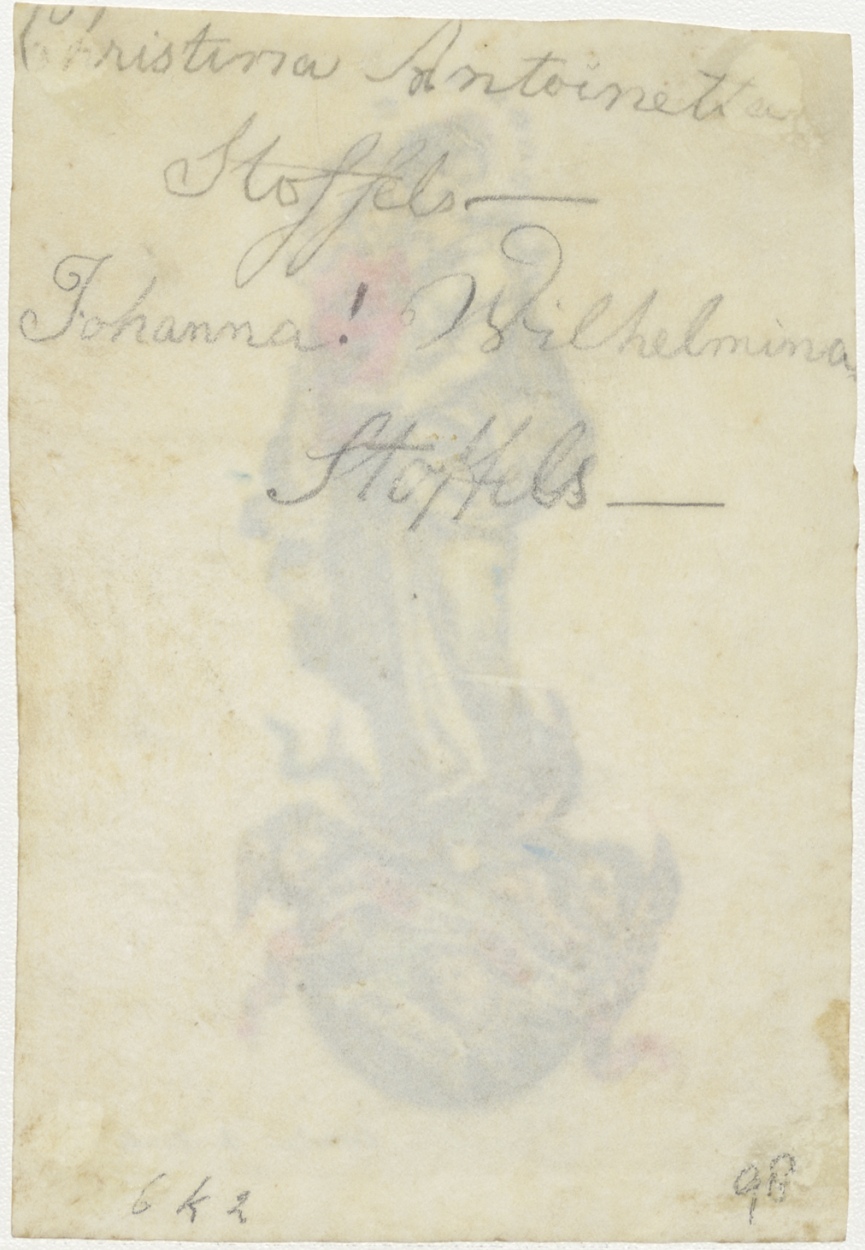 Christina Antoinetta
Stoffels—
Johanna! Wilhelmina
Stoffels —
6 k 2